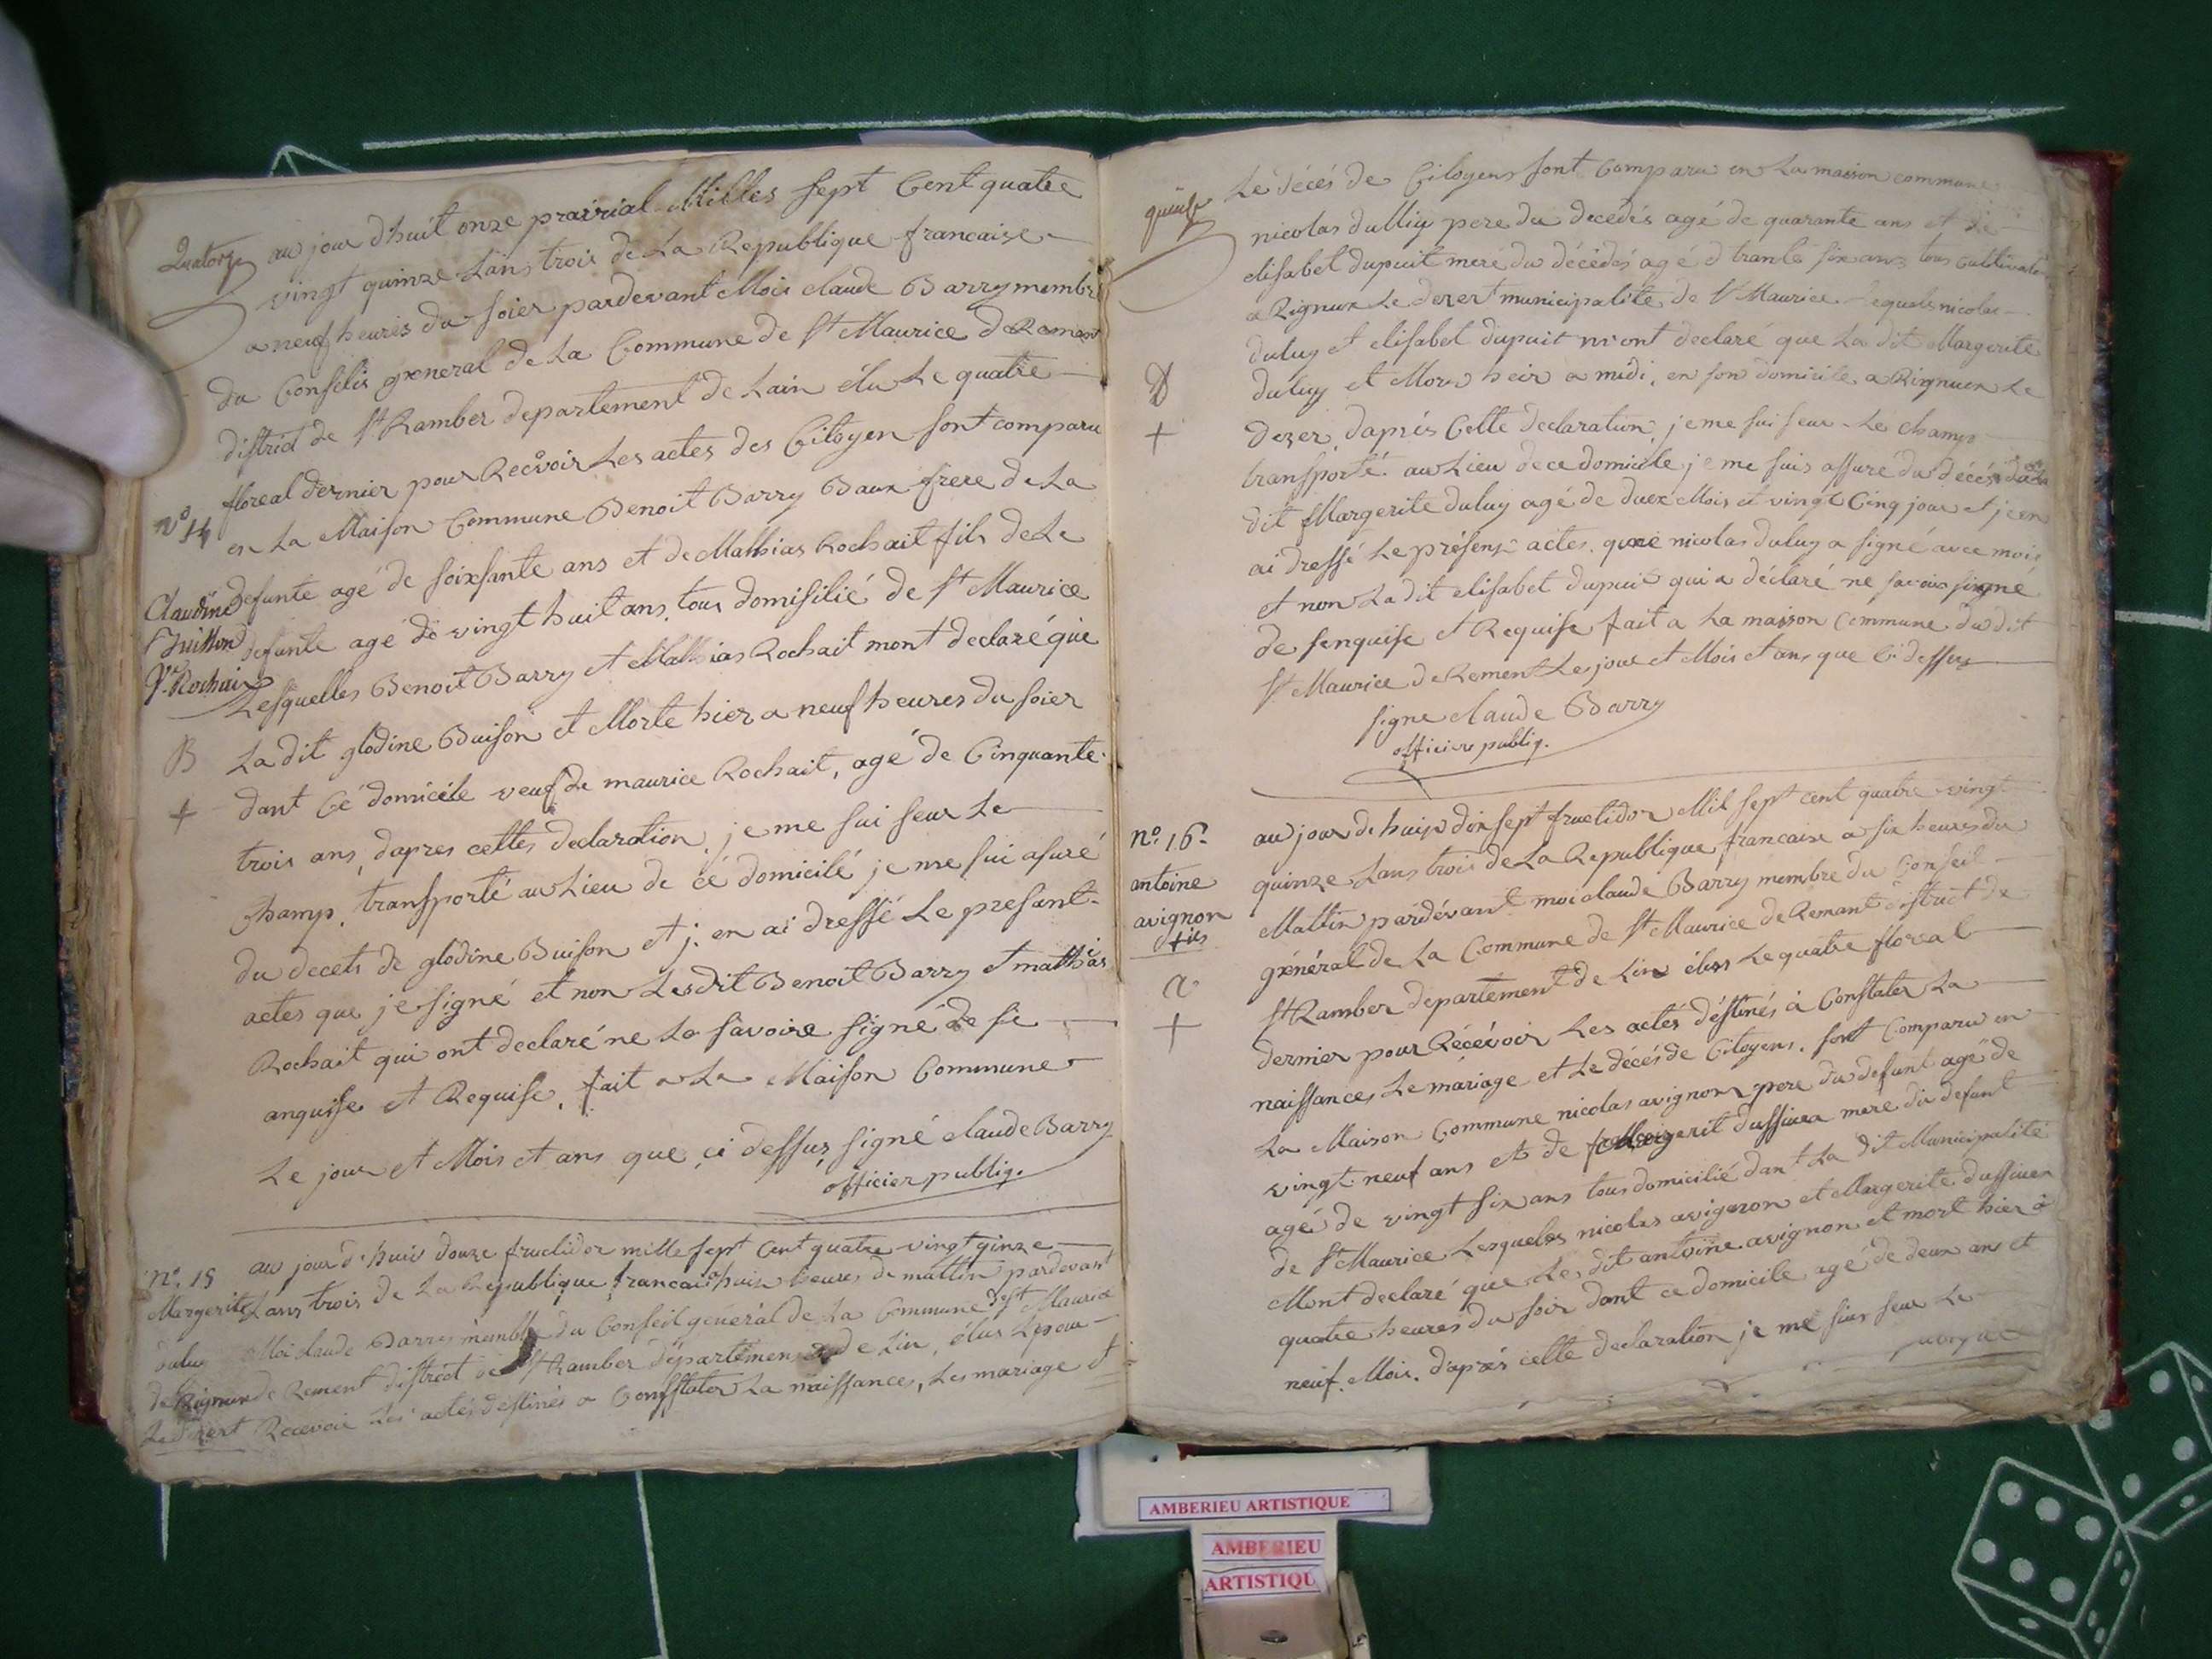 Quatorze
au jour d'huit onze prairial Milles Sept Cent quatre
vingt quinze Lans trois de La Republique francaise
a neuf heures du soier pardevant Mois claude Barry membre
du Conselis gneneral de La Commune de St Maurice de Remant
district de St Ramber departement de Lain élu Le quatre
floreal dernier pour Recevoir Les actes des Citoyen sont comparu
en La Maison Commune Benoit Barry Baux frere de La
defunte agé de soixsante ans et de Mathias Rochait fils de La
defunte agé de vingt huit ans, tous domisilié de St Maurice
Lesquelles Benoit Barry et Mathias Rochait mont declaré que
La dit glodine Buison et Morte hier a neuf heures du soier
dant Cé domicile veuf de maurice Rochait, agé de Cinquante
trois ans, dapres cettes declaration, je me sui seur Le
Champ, transporté au Lieu de cé domicilé je me sui asuré
du decets de glodine Buison et j. en ai dressé Le presant
actes que je signé et non Lesdit Benoit Barry et mathias
Rochait qui ont declaré ne La savoire signé de se
anquise et Requise, fait a La Maison Commune
Le jour et Mois et ans que ci dessus signé claude Barry
officier publiq.
no 14
Claudine
Buisson
Ve Rochai
B
+
au jour d'huis douze fructidor mille sept cent quatre vingt ginze
Lans trois de La Republique francai a huis heures de mattin pardevant
Moi claude Barry membre du Conseil général de La Commune de St Maurice
de Rement district de St Ramber département de Lin, élus Lepour
Recevoir Les actes destinés a Consstater La naissances, Les mariage et
No. 15
Margerite
duluy
de Rignun
Le desert
quinze
Le décés de Citoyens sont Comparu en La maison commune
nicolas dulliy pere du decédés agé de quarante ans et de
elisabet dupuit meré du décédés agé d trante six ans tous cultivateur
a Rignux Le dezert municipalité de St Maurice Lequels nicolas
duluy et elisabet dupuit m'ont declaré que La dit Margerite
duluy et Mors heir a midi, en son domicile a Rignuex Le
dezer, daprés Cette declaration, je me sui seur Le champs
transporté au Lieu de ce domicile je me suis assuré du décés de La
dit Margerite duluy agé de duex Mois et vingt Cinq jour et j'en
ai dressé Le présens actes, que nicolas duluy a signé avce mois
et non La dit elisabet dupuit qui a déclaré ne savoir signé
de senquise et Requise fait a La maison Commune du dit
St Maurice de Rement Les jour et Mois et ans que Ci dessus
signe claude Barry
officier publiq.
+
au jour de huis dix sept fructidor Mil sept cent quatre vingt
quinze Lans trois de La Republique francaise a six heures du
Mattin pardévant moi claude Barry membre du Conseil
général de La Commune de St Maurice de Remant district de
St Ramber departement de Lin élus Le quatre floreal
dernier pour Récévoir Les actes déstinés à Constater La
naissances Le mariage et Le décés de Citoyens, sont Comparu en
La Maison Commune nicolas avignon pere du defunt agé de
vingt neuf ans et de Margerit dussiuea mere du defunt
agé de vingt six ans tous domicilié dant La dit Municipalité
de St Maurice Lesqueles nicolas avignon et Margerite dussiuea
Mont declaré que Le dit antoine avignon et mort hier à
quatre heures du soir dant ce domicile agé de deux ans et
neuf Mois, daprés cette declaration je me suis seur Le
no. 16.
antoine
avignon
fils
a
+
AMBERIEU ARTISTIQUE
AMBERIEU
ARTISTIQU